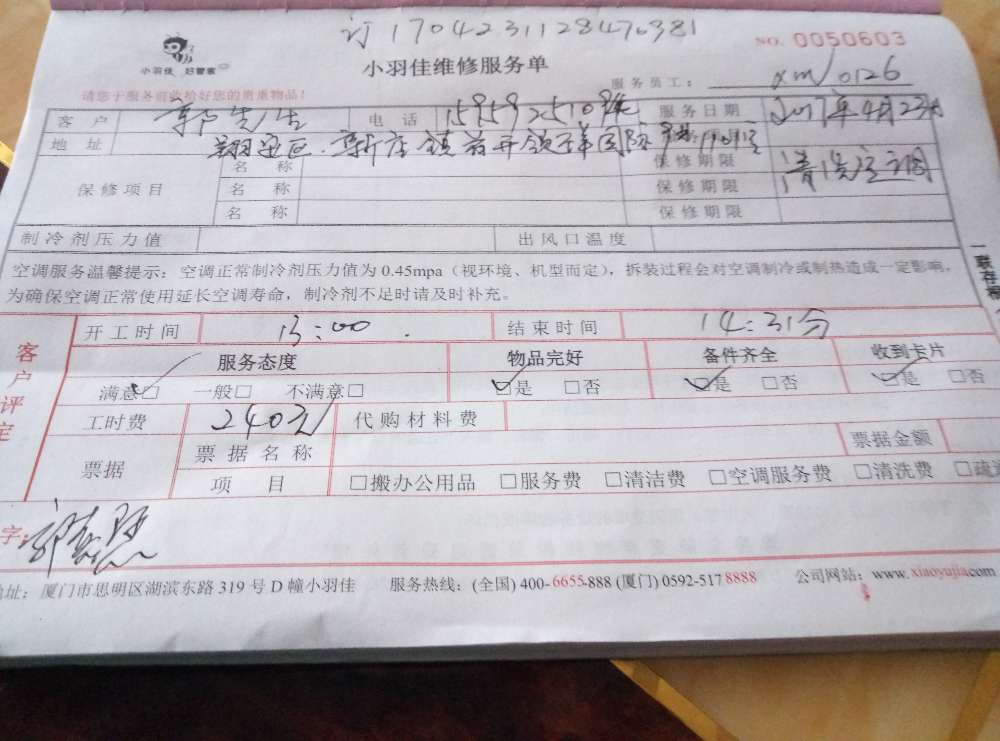 订170423112847 6381
NO. 0050603
小羽佳 好管家
小羽佳维修服务单
服务员工: xm/0126
请您于服务前收给好您的贵重物品!
客户 郭先生 电话 服务日期 2017年4月23日
地址 翔安区.新店镇
保修项目 名称 保修期限 清洗空调
名称 保修期限
名称 保修期限
制冷剂压力值 出风口温度
空调服务温馨提示: 空调正常制冷剂压力值为 0.45mpa (视环境、机型而定), 拆装过程会对空调制冷或制热造成一定影响,
为确保空调正常使用延长空调寿命, 制冷剂不足时请及时补充。
一联存根
客户评定
开工时间 13:00 结束时间 14:31分
服务态度 物品完好 备件齐全 收到卡片
满意□ 一般□ 不满意□ □是 □否 □是 □否 □是 □否
工时费 240元 代购材料费
票据 票据名称 票据金额
项目 □搬办公用品 □服务费 □清洁费 □空调服务费 □清洗费
字:
地址: 厦门市思明区湖滨东路 319 号 D 幢小羽佳 服务热线: (全国) 400-6655-888 (厦门) 0592-517 8888 公司网站: www.xiaoyujia.com